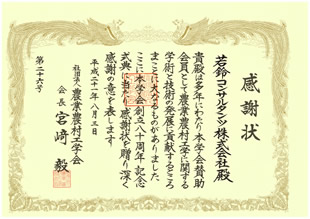 感謝状
若鈴コンサルタンツ株式会社殿
貴殿は多年にわたり本学会賛助
会員として農業農村工学に関する
学術と技術の発展に貢献するところ
まことに大なるものがありました
ここに本学会創立八十周年記念
式典に当たり感謝状を贈り深く
感謝の意を表します
平成二十一年八月三日
社団法人農業農村工学会
会長 宮﨑 毅
第二十六号